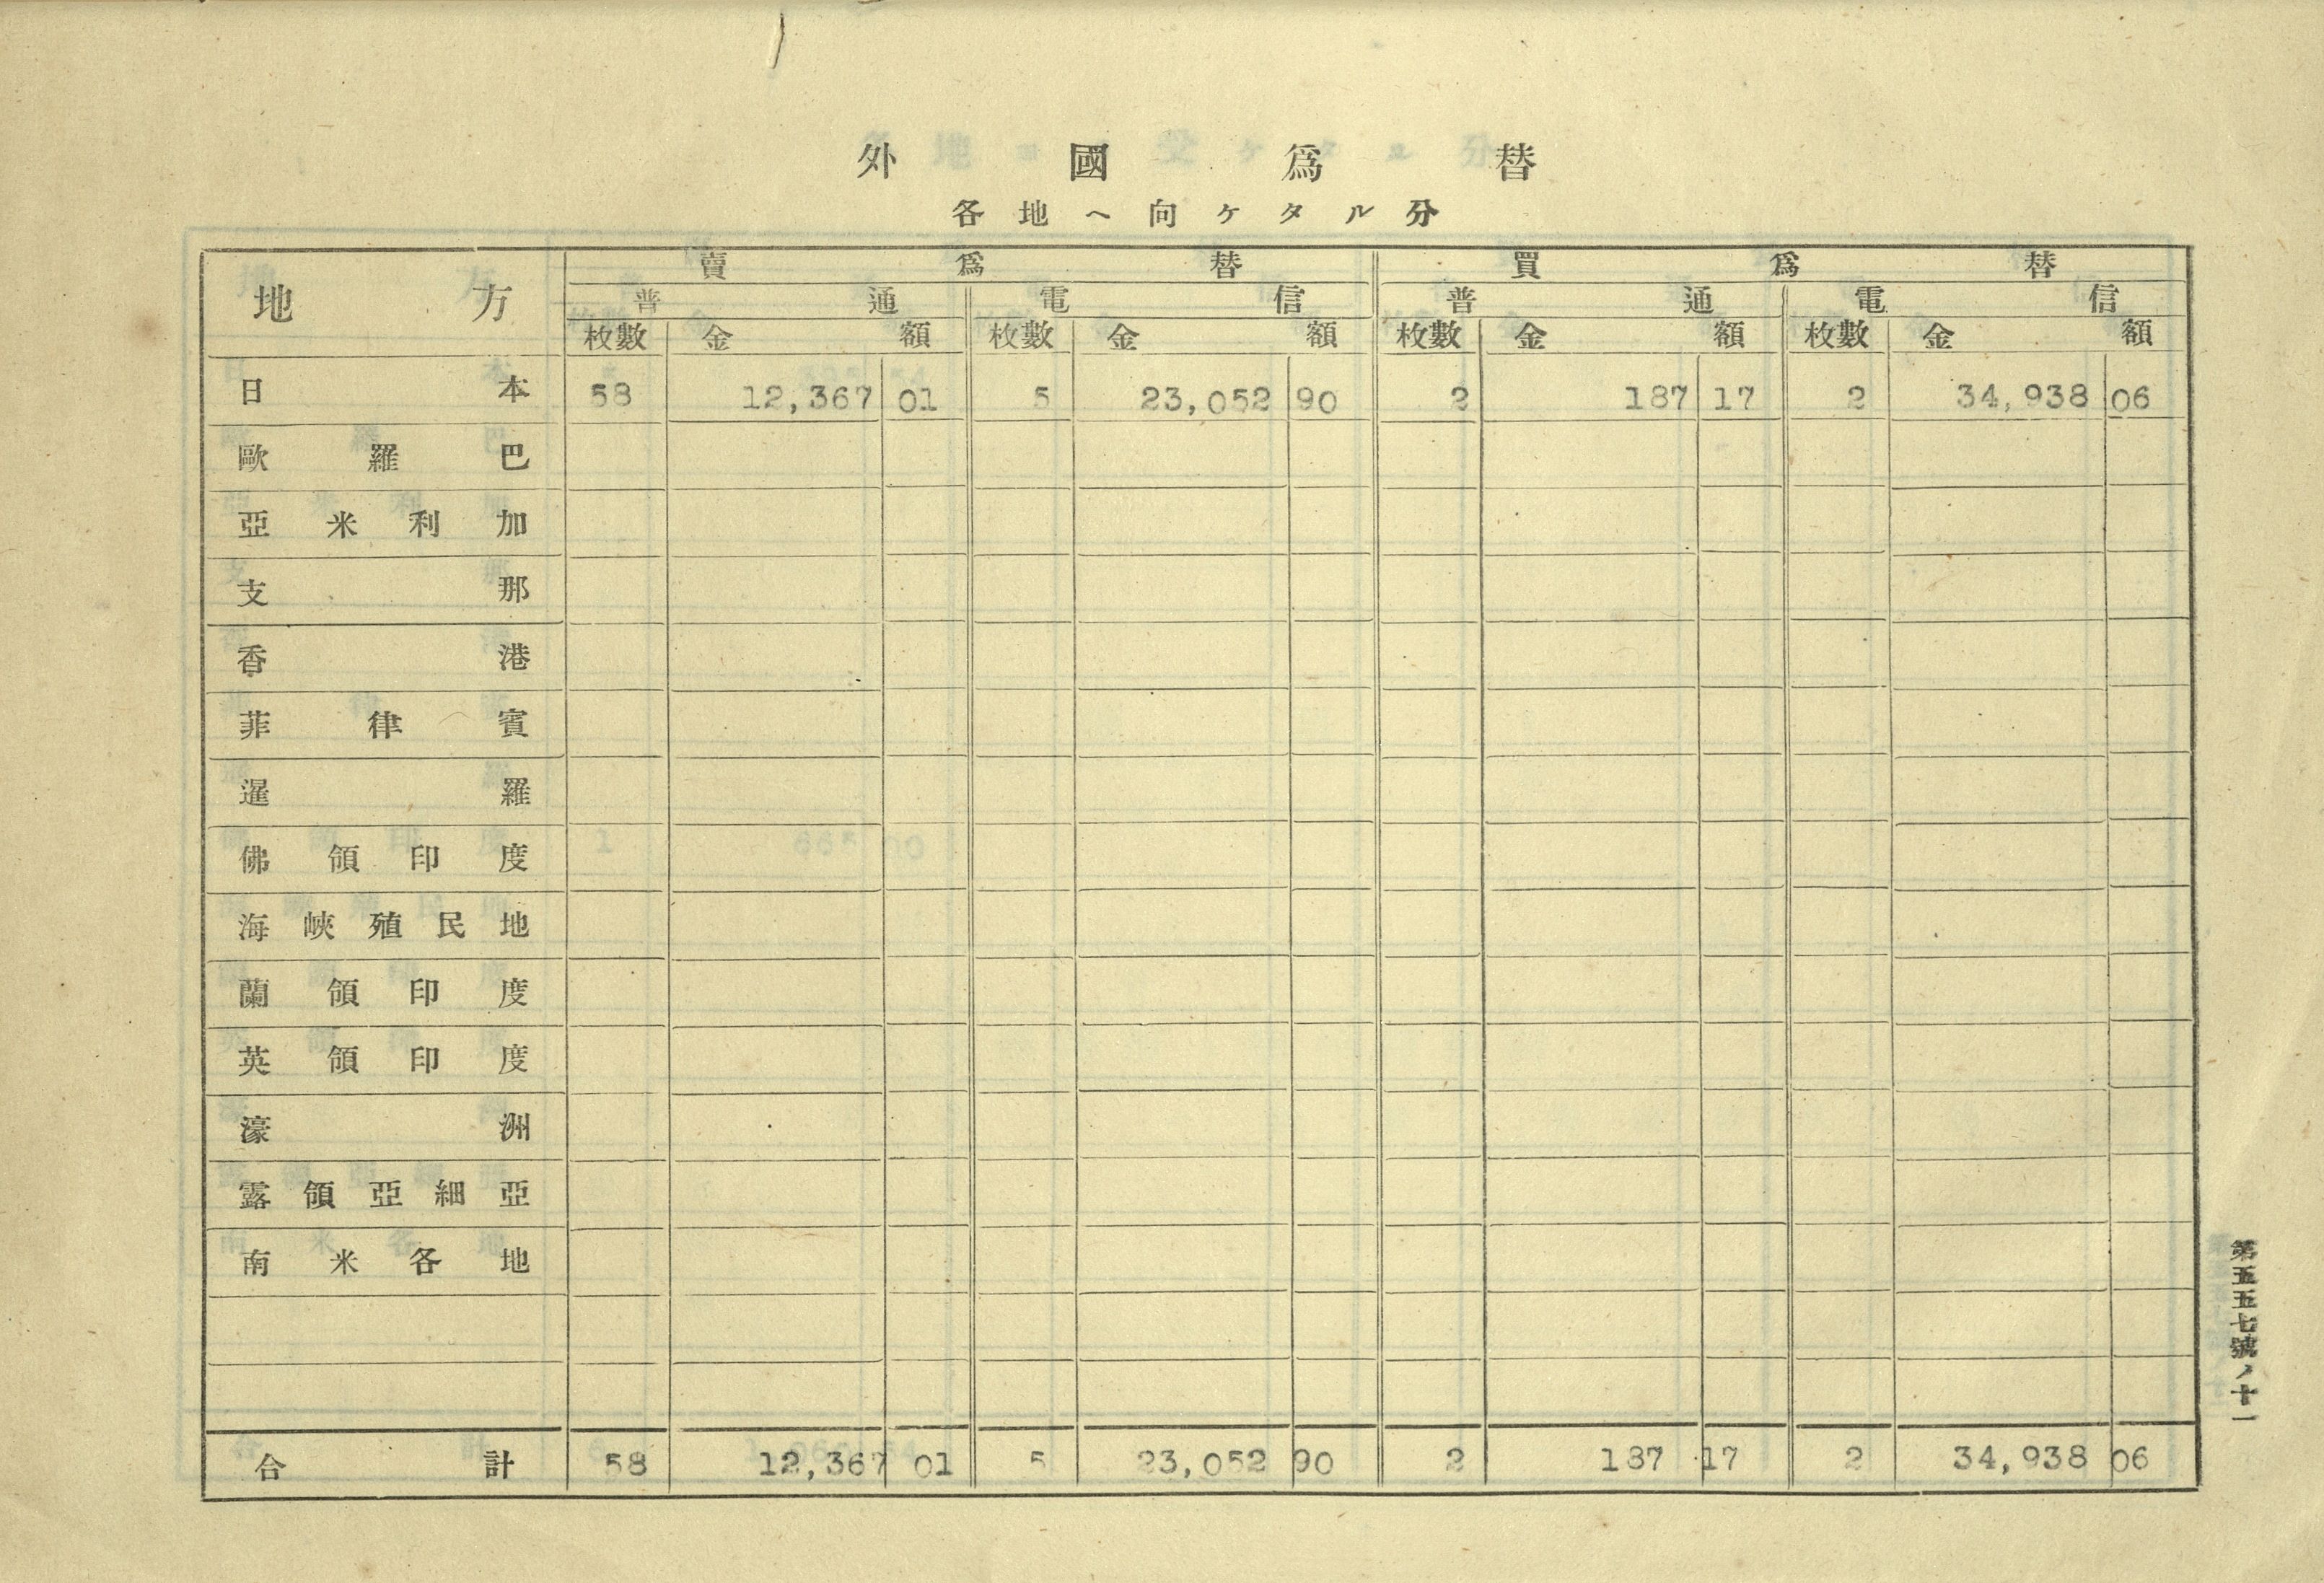 外國爲替
各地ヘ向ケタル分
地方 賣爲替 買爲替
普通 電信 普通 電信
枚數 金額 枚數 金額 枚數 金額 枚數 金額
日本 58 12,367 01 5 23,052 90 2 187 17 2 34,938 06
歐羅巴
亞米利加
支那
香港
菲律賓
暹羅
佛領印度
海峽殖民地
蘭領印度
英領印度
濠洲
露領亞細亞
南米各地
合計 58 12,367 01 5 23,052 90 2 187 17 2 34,938 06
第五五七號ノ十一